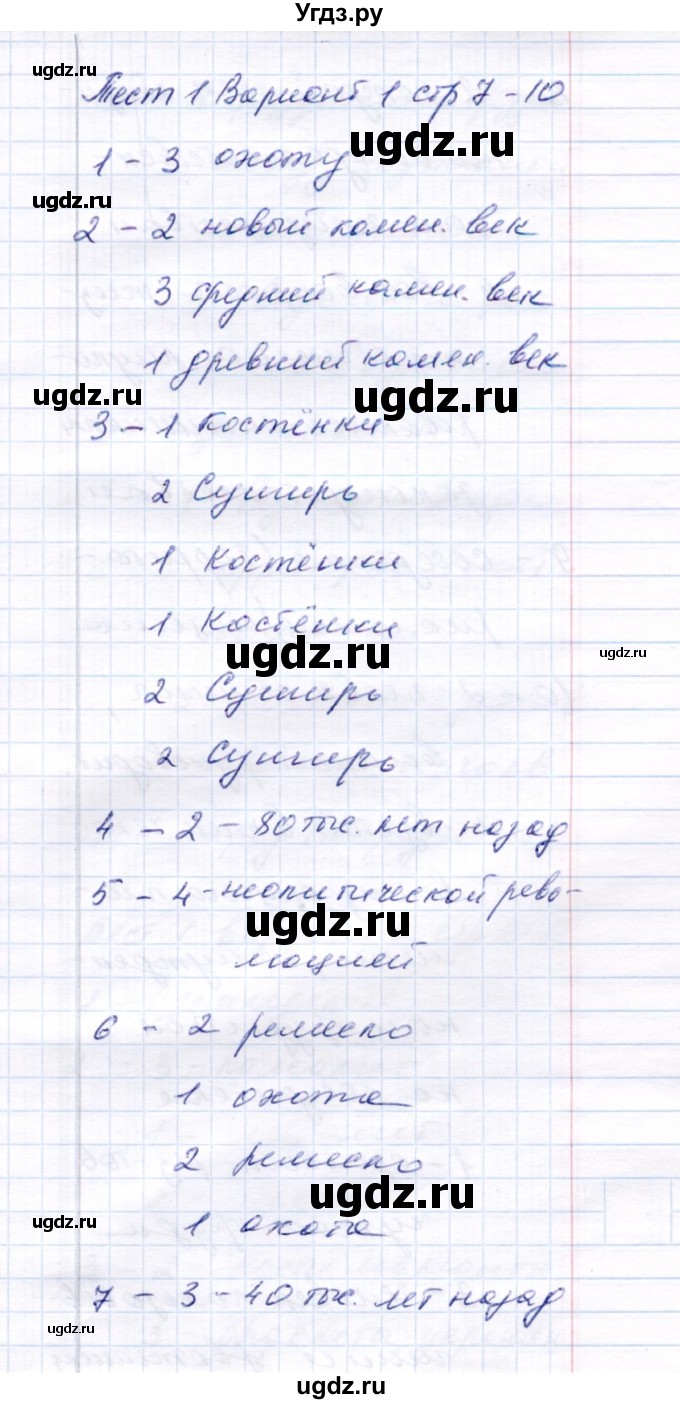 Угдз.ру
ugdz.ru
Тест 1 Вариант 1 стр 7-10
ugdz.ru
1 - 3 охоту
ugdz.ru
2 - 2 новый камен. век
3 средний камен. век
1 древний камен. век
ugdz.ru
ugdz.ru
3 - 1 Костёнки
2 Сунгирь
1 Костёнки
1 Костёнки
ugdz.ru
ugdz.ru
2 Сунгирь
2 Сунгирь
4 - 2 - 80 тыс. лет назад
ugdz.ru
5 - 4 - неолитической рево-
ugdz.ru
люцией
6 - 2 ремесло
1 охота
2 ремесло
ugdz.ru
ugdz.ru
1 охота
7 - 3 - 40 тыс. лет назад
ugdz.ru
ugdz.ru